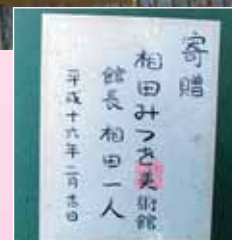 寄贈
相田みつを美術館
館長 相田一人
平成十六年二月吉日